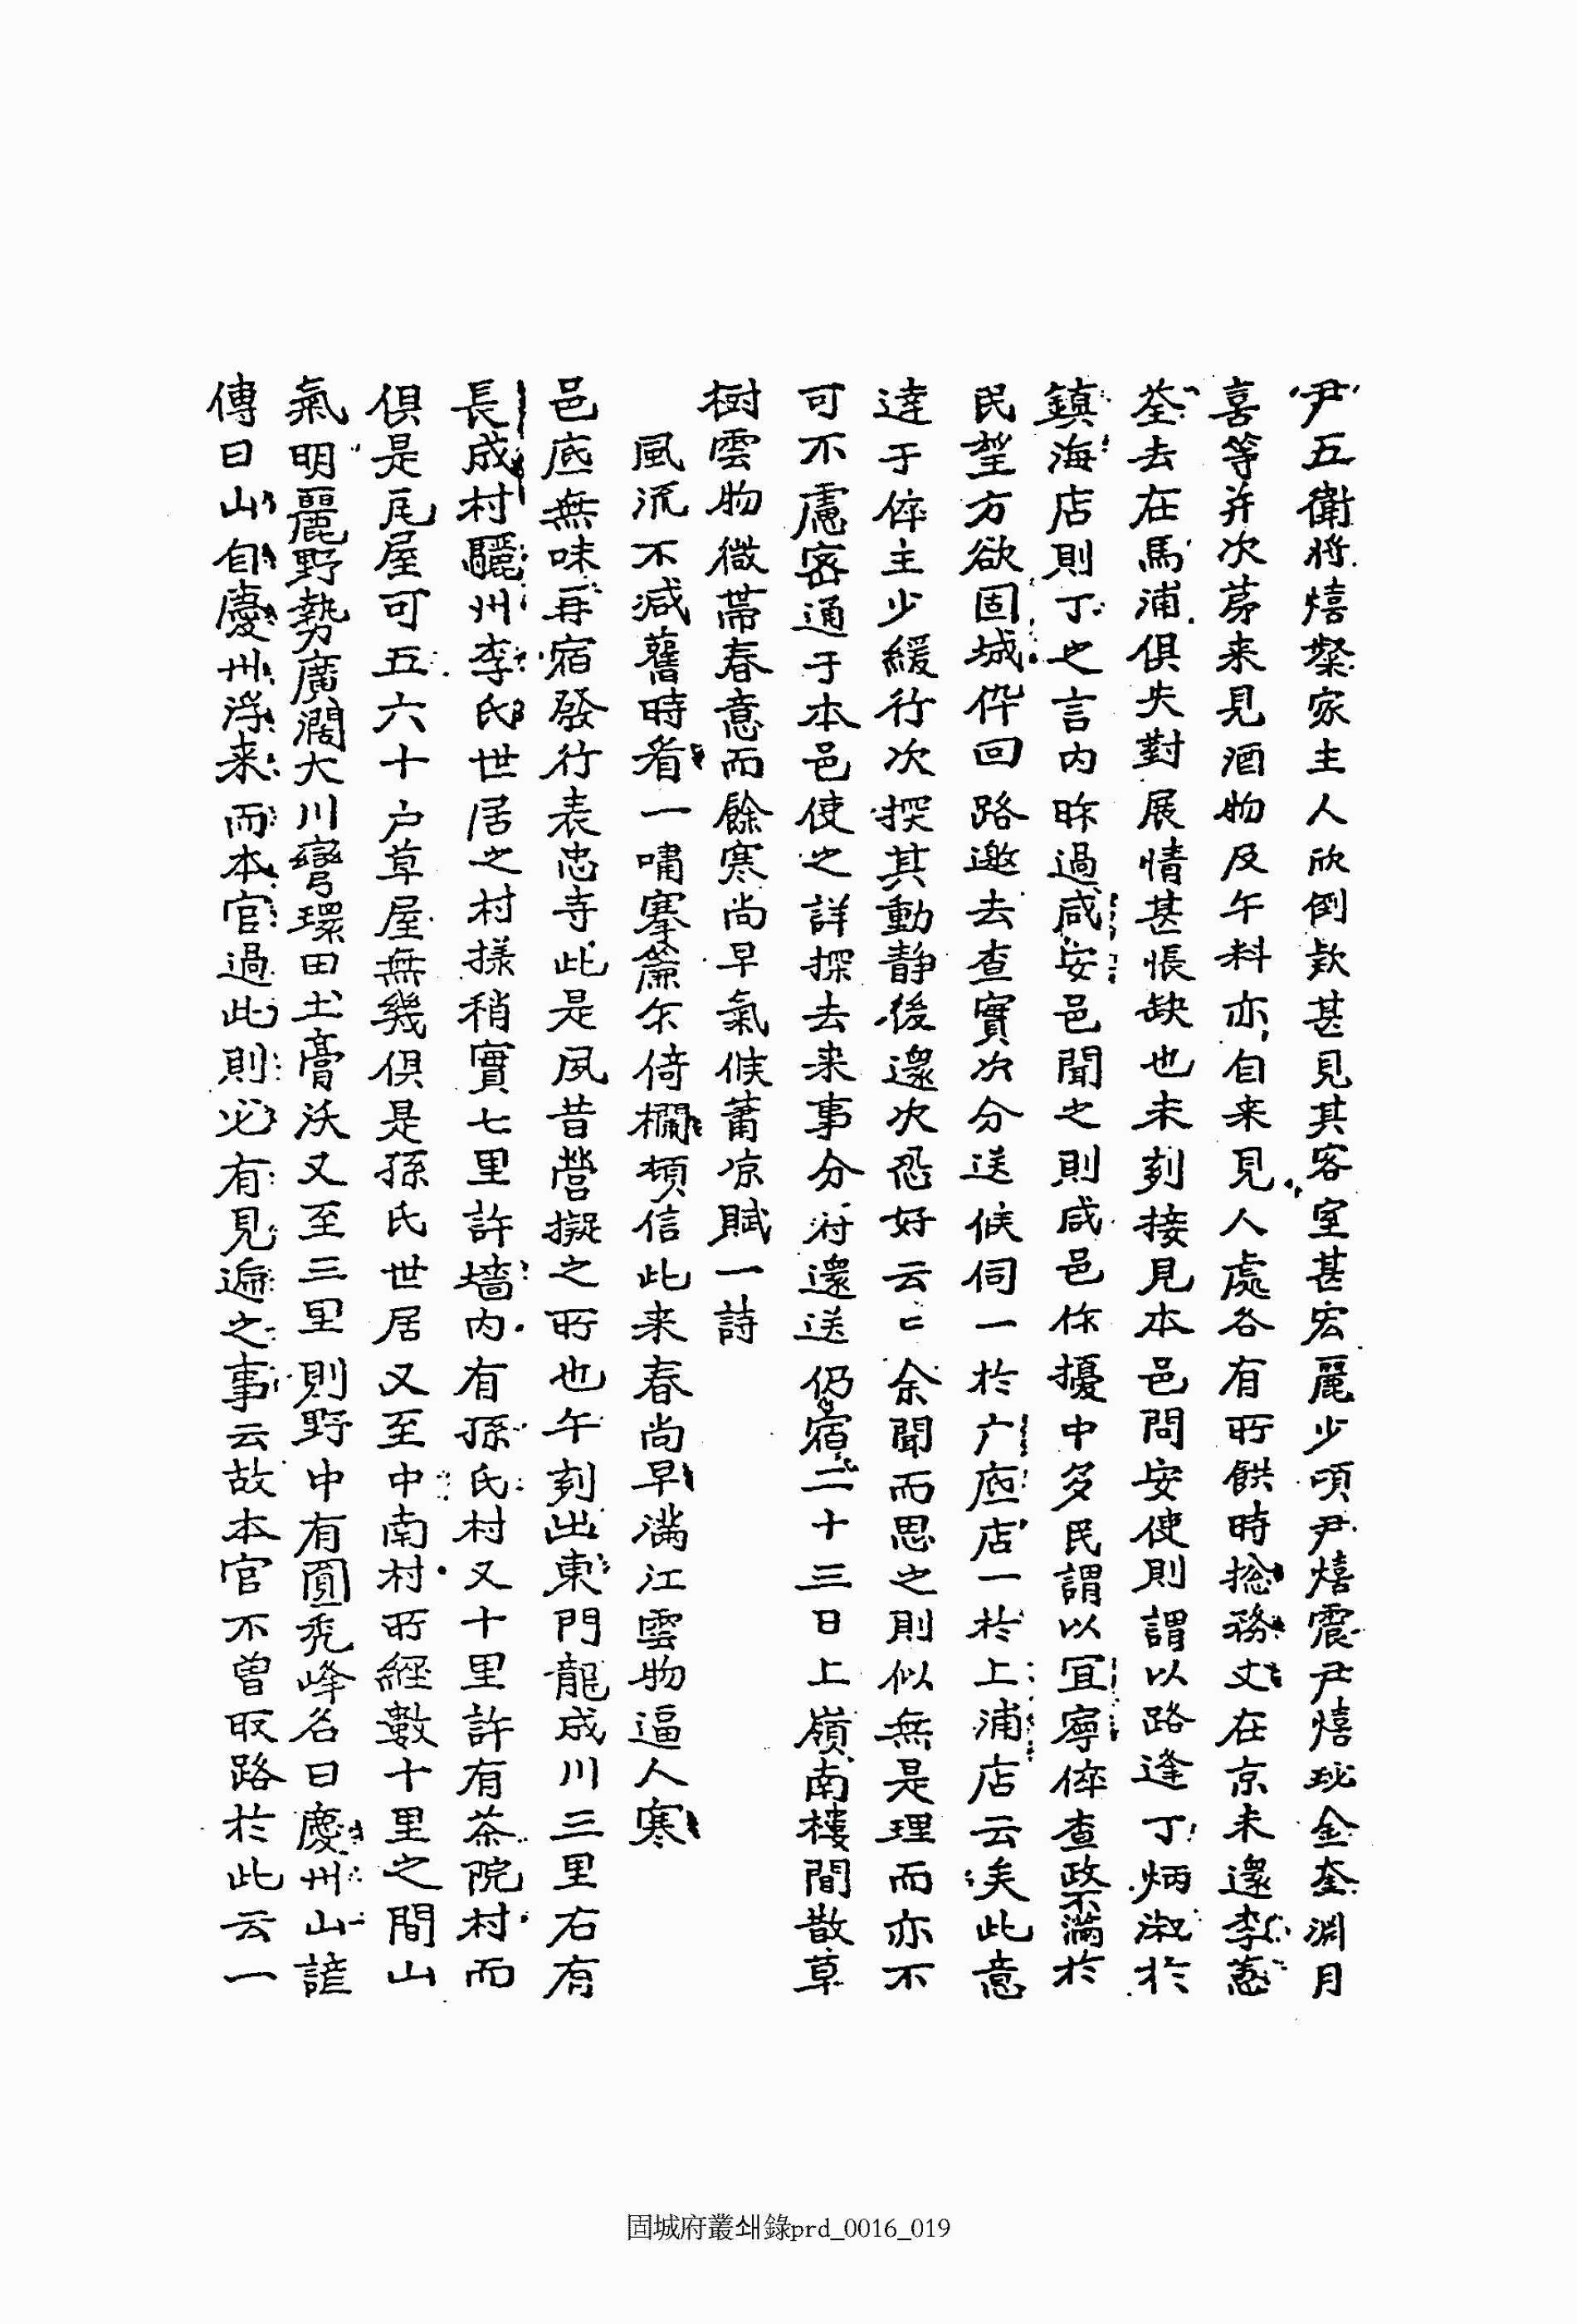 尹五衛將熺粲家主人欣倒欵甚見其客室甚宏麗少頃尹熺震尹熺珌金奎淵月
喜等并次苐来見酒物及午料亦自来見人處各有所餽時捴務丈在京未還李憲
荃去在馬浦俱失對展情甚悵缺也未刻接見本邑問安使則謂以路逢丁炳淑於
鎮海店則丁也言内昨過咸安邑聞之則咸邑作擾中多民謂以宜寧倅査政不滿於
民望方欲固城倅回路邀去查實次分送候伺一於广店一於上浦店云矣此意
達于倅主少緩行次探其動静後還次恐好云〻余聞而思之則似無是理而亦不
可不慮密通于本邑使之詳探去来事分付還送仍宿二十三日上嶺南樓間散草
樹雲物微帯春意而餘寒尚早氣候蕭凉賦一詩
風流不减舊時看一嘯搴簾更倚欄頓信此来春尚早滿江雲物逼人寒
邑底無味再宿發行表忠寺此是夙昔營擬之所也午刻出東門龍成川三里右有
長成村驪州李氏世居之村㨾稍實七里許墻内有孫氏村又十里許有茶院村而
俱是瓦屋可五六十户草屋無幾俱是孫氏世居又至中南村所經數十里之間山
氣明麗野勢廣濶大川彎環田土膏沃又至三里則野中有圓禿峰名曰慶州山諺
傳曰山自慶州浮来而本官過此則必有見遞之事云故本官不曽取路於此云一
固城府叢쇄錄prd_0016_019